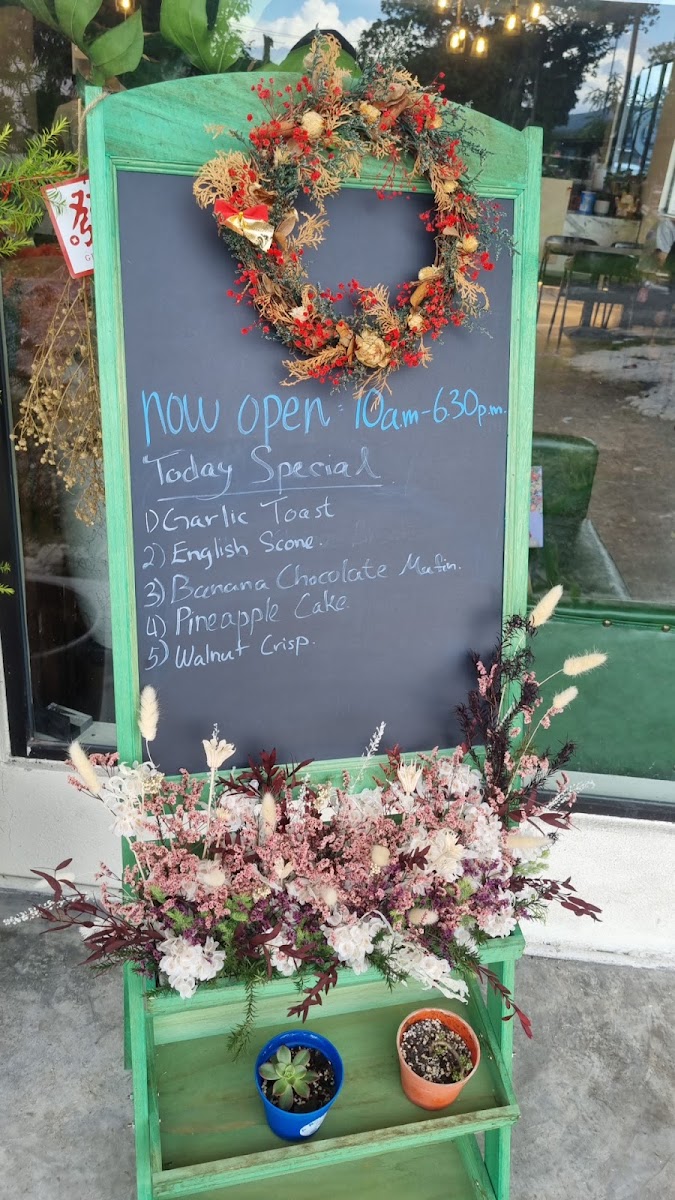 發
now open : 10a.m-6.30p.m.
Today Special
1) Garlic Toast
2) English Scone.
3) Banana Chocolate Mufin.
4) Pineapple Cake.
5) Walnut Crisp.